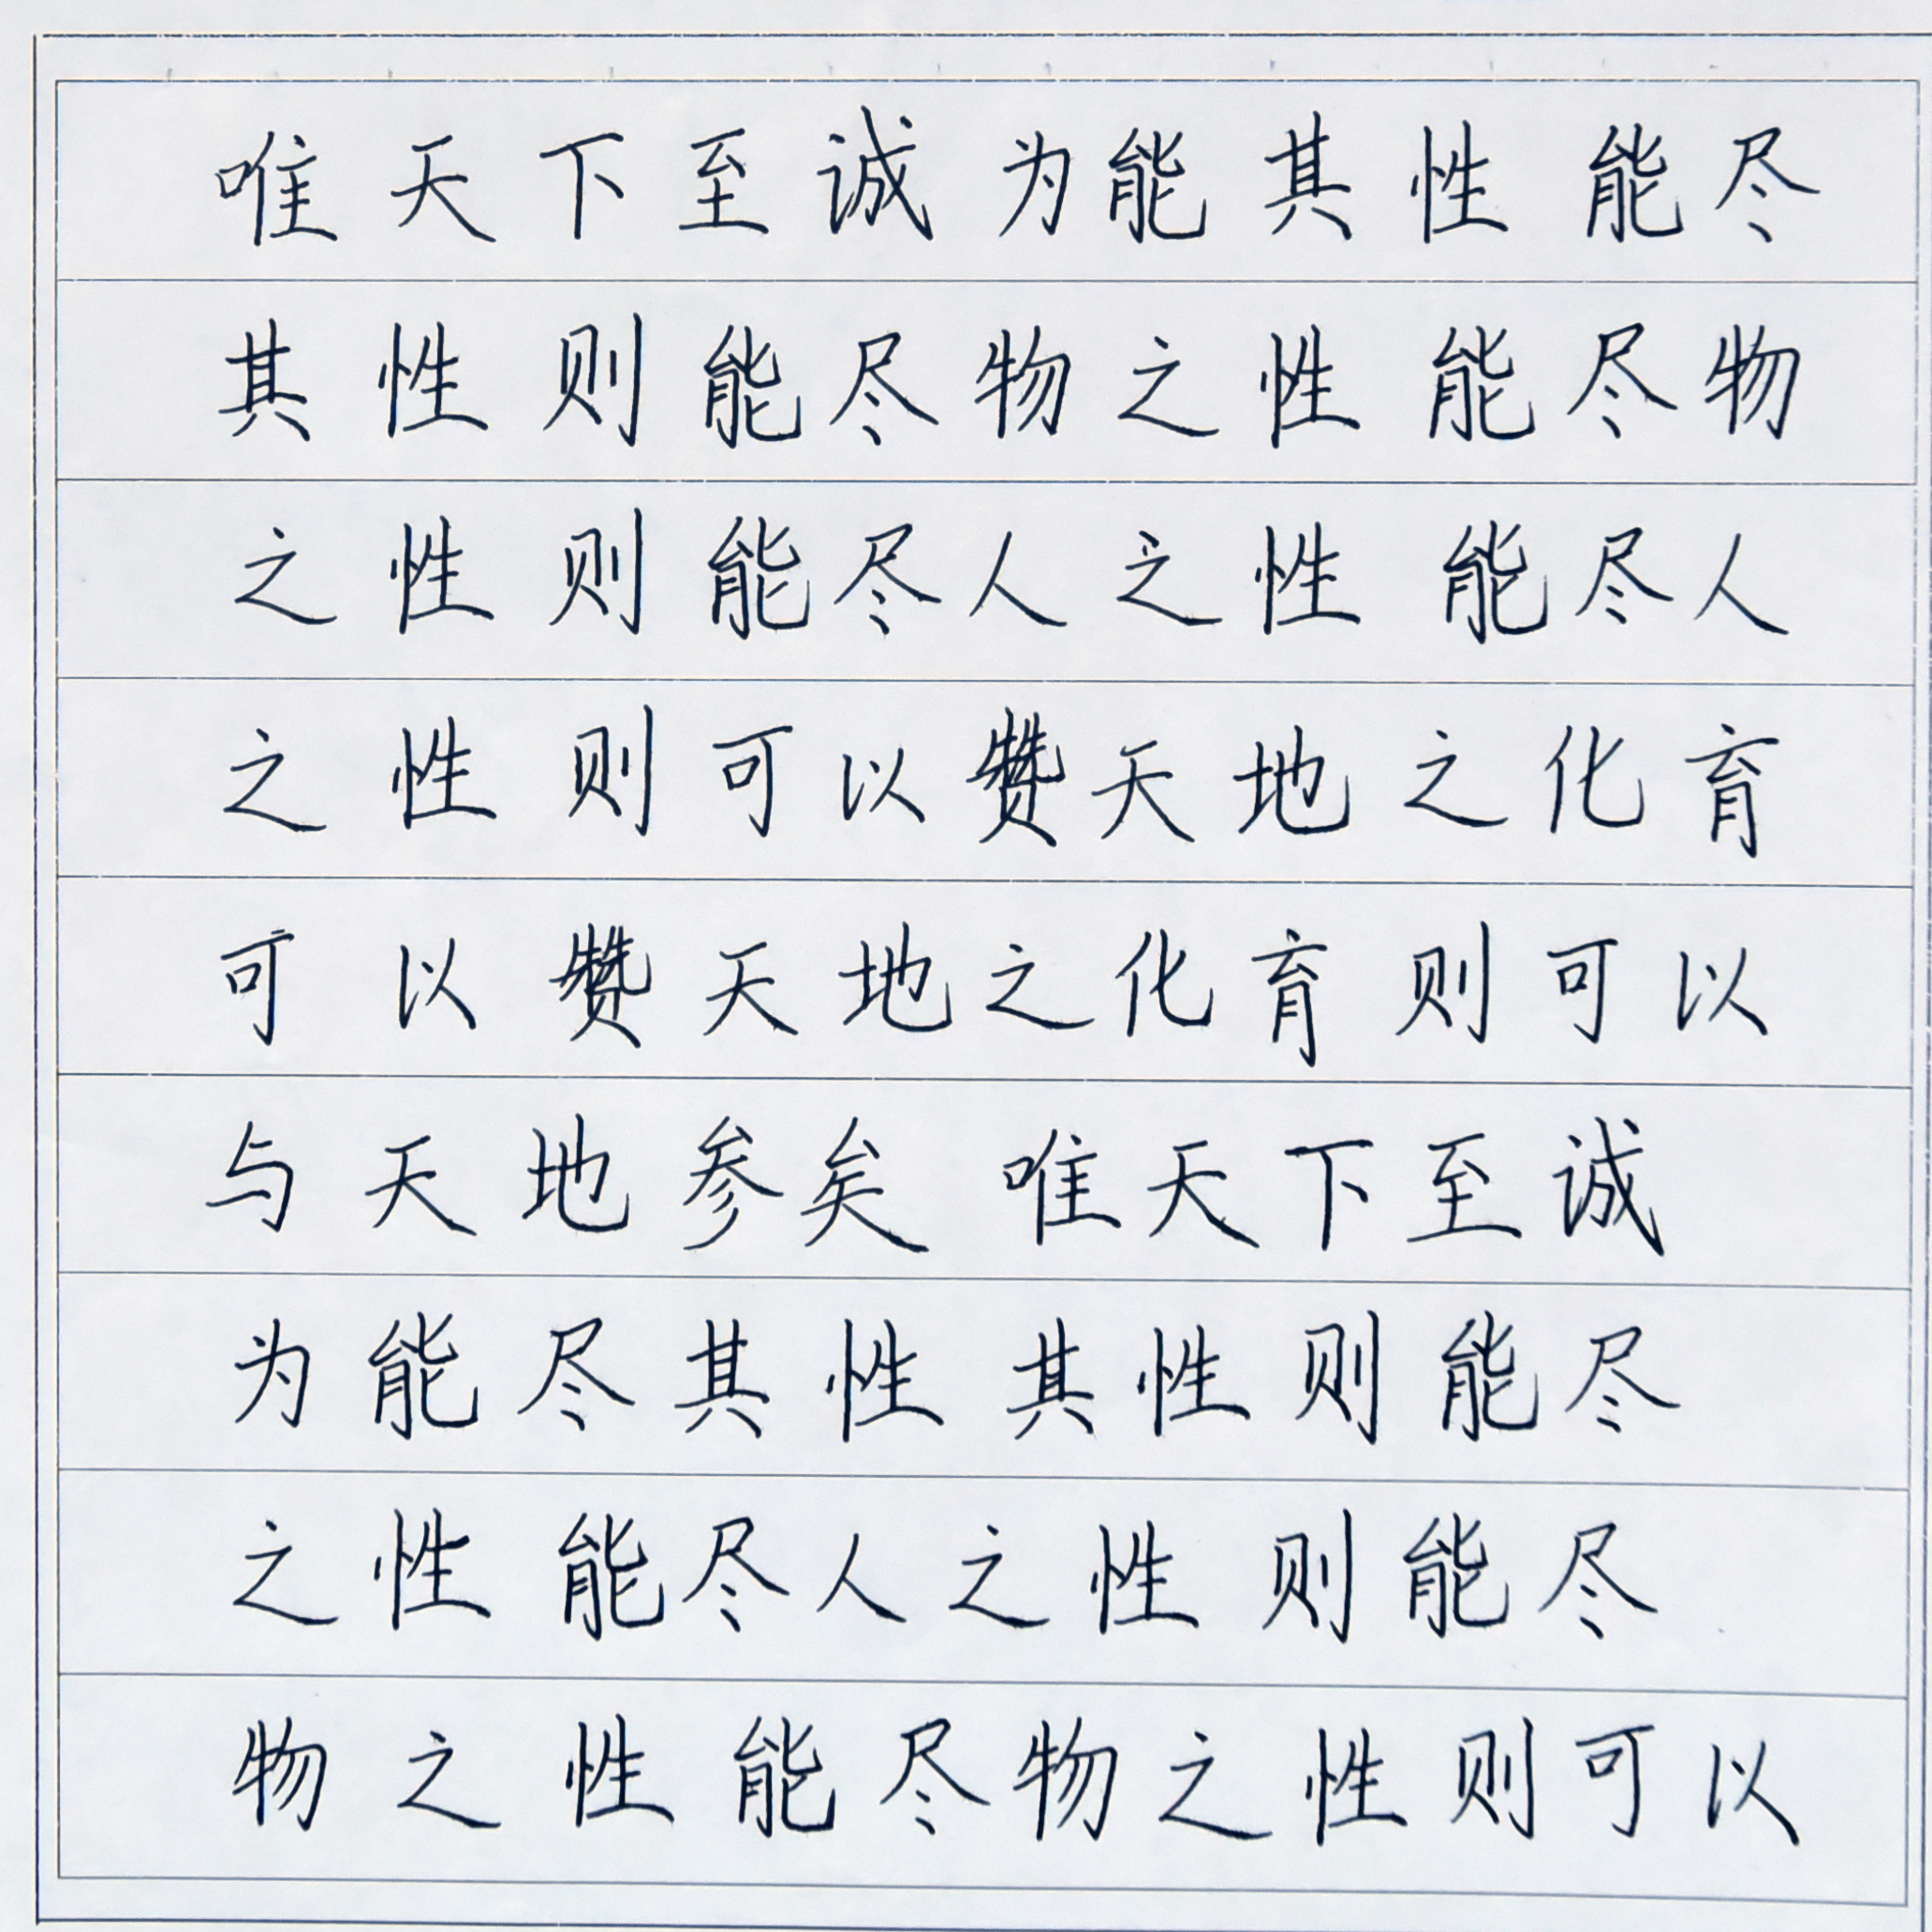 唯天下至诚为能其性能尽
其性则能尽物之性能尽物
之性则能尽人之性能尽人
之性则可以赞天地之化育
可以赞天地之化育则可以
与天地参矣 唯天下至诚
为能尽其性 其性则能尽
之性能尽人之性则能尽
物之性能尽物之性则可以